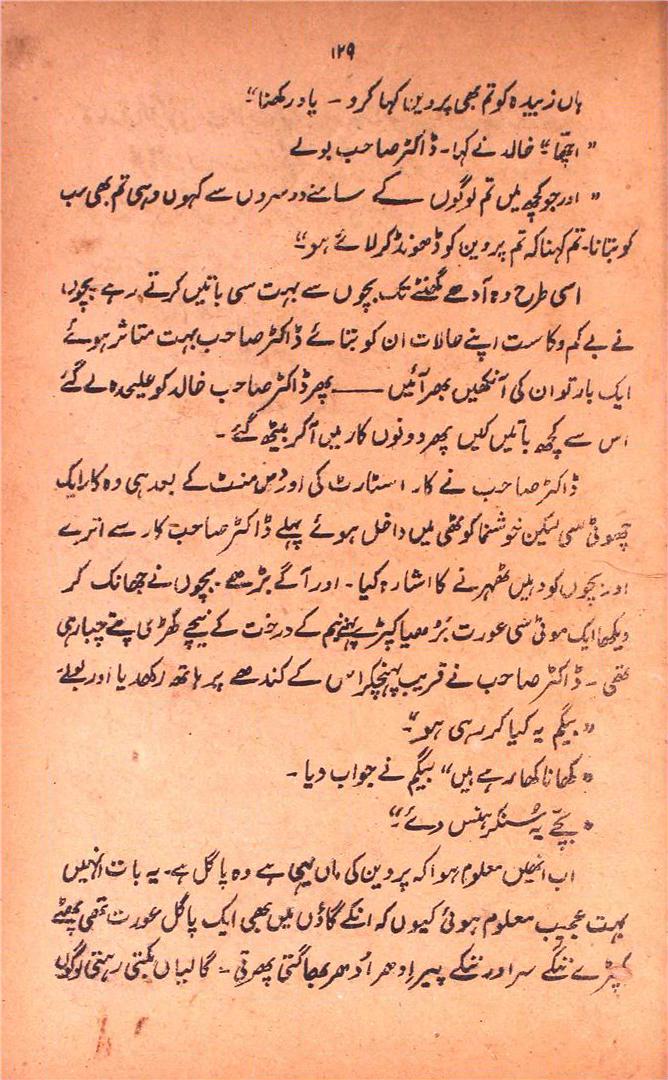 ۱۲۹
ہاں زبیدہ کو تم بھی پروین کہا کرو - یاد رکھنا"
" اچھا" خالد نے کہا - ڈاکٹر صاحب بولے
" اور جو کچھ میں تم لوگوں کے سامنے دوسروں سے کہوں وہی تم بھی سب
کو بتانا - تم کہنا کہ تم پروین کو ڈھونڈ کر لائے ہو"
اسی طرح وہ آدھے گھنٹے تک بچوں سے بہت سی باتیں کرتے رہے بچوں
نے بے کم و کاست اپنے حالات ان کو بتائے ڈاکٹر صاحب بہت متاثر ہوئے
ایک بار تو ان کی آنکھیں بھر آئیں —— پھر ڈاکٹر صاحب خالد کو علیحدہ لے گئے
اس سے کچھ باتیں کیں پھر دونوں کار میں آکر بیٹھ گئے -
ڈاکٹر صاحب نے کار اسٹارٹ کی اور دس منٹ کے بعد ہی وہ کار ایک
چھوٹی سی لیکن خوشنما کوٹھی میں داخل ہوئے پہلے ڈاکٹر صاحب کار سے اترے
اور بچوں کو وہیں ٹھہرنے کا اشارہ کیا - اور آگے بڑھے - بچوں نے جھانک کر
دیکھا ایک موٹی سی عورت بڑھیا کپڑے پہنے نیم کے درخت کے نیچے کھڑی پتے چبا رہی
تھی - ڈاکٹر صاحب نے قریب پہنچکر اس کے کندھے پر ہاتھ رکھدیا اور بولے
" بیگم یہ کیا کر رہی ہو"
" کھانا کھا رہے ہیں" بیگم نے جواب دیا -
" بچے یہ سُنکر ہنس دئے"
اب انھیں معلوم ہوا کہ پروین کی ماں یہی ہے وہ پاگل ہے - یہ بات انہیں
بہت عجیب معلوم ہوئی کیوں کہ انکے گاؤں میں بھی ایک پاگل عورت تھی پھٹے
کپڑے ننگے سر اور ننگے پیر اِدھر اُدھر بھاگتی پھرتی - گالیاں بکتی رہتی لوگوں